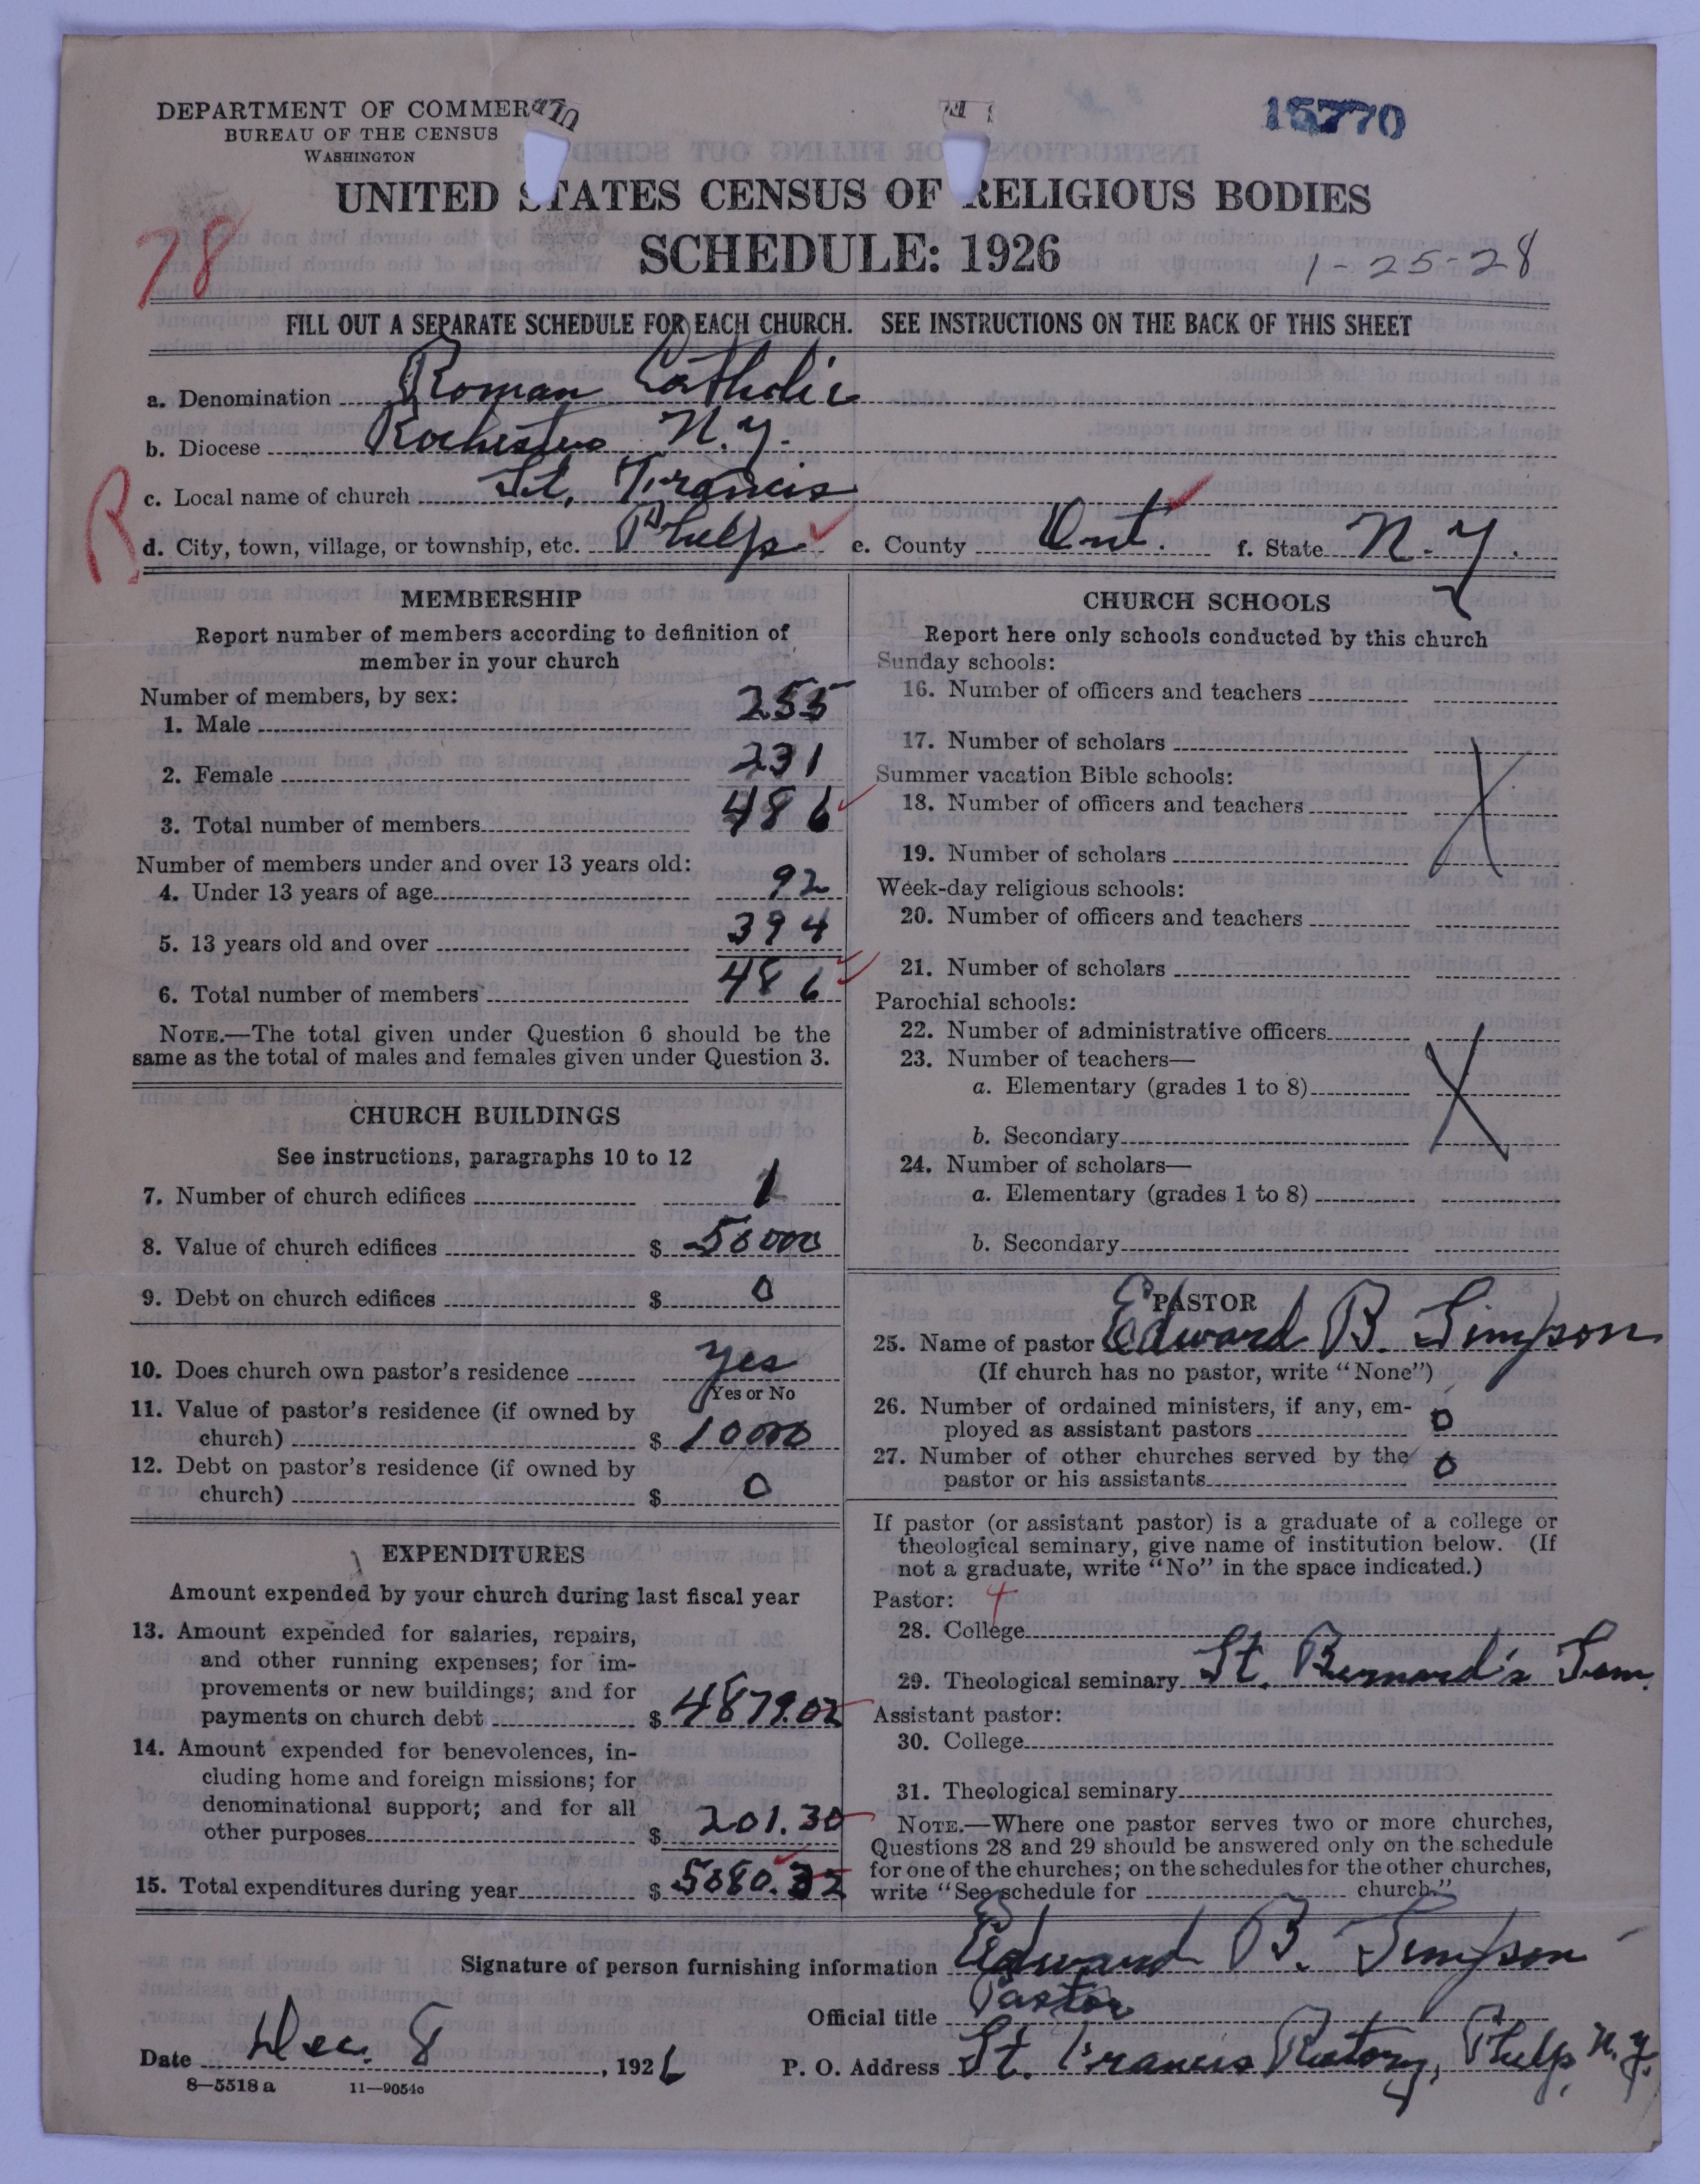 DEPARTMENT OF COMMER
BUREAU OF THE CENSUS
WASHINGTON
15770
UNITED STATES CENSUS OF RELIGIOUS BODIES
SCHEDULE: 1926
78
1-25-28
FILL OUT A SEPARATE SCHEDULE FOR EACH CHURCH. SEE INSTRUCTIONS ON THE BACK OF THIS SHEET
a. Denomination Roman Catholic
b. Diocese Rochester N.Y.
c. Local name of church St. Francis
R
d. City, town, village, or township, etc. Phelps e. County Ont. f. State N.Y.
MEMBERSHIP
Report number of members according to definition of
member in your church
Number of members, by sex:
1. Male 255
2. Female 231
3. Total number of members 486
Number of members under and over 13 years old:
4. Under 13 years of age 92
5. 13 years old and over 394
6. Total number of members 486
NOTE.—The total given under Question 6 should be the
same as the total of males and females given under Question 3.
CHURCH BUILDINGS
See instructions, paragraphs 10 to 12
7. Number of church edifices 1
8. Value of church edifices $ 50000
9. Debt on church edifices $ 0
10. Does church own pastor's residence yes
Yes or No
11. Value of pastor's residence (if owned by
church) $ 10000
12. Debt on pastor's residence (if owned by
church) $ 0
EXPENDITURES
Amount expended by your church during last fiscal year
13. Amount expended for salaries, repairs,
and other running expenses; for im-
provements or new buildings; and for
payments on church debt $ 4879.02
14. Amount expended for benevolences, in-
cluding home and foreign missions; for
denominational support; and for all
other purposes $ 201.30
15. Total expenditures during year $ 5080.32
CHURCH SCHOOLS
Report here only schools conducted by this church
Sunday schools:
16. Number of officers and teachers
17. Number of scholars
Summer vacation Bible schools:
18. Number of officers and teachers
19. Number of scholars
Week-day religious schools:
20. Number of officers and teachers
21. Number of scholars
Parochial schools:
22. Number of administrative officers
23. Number of teachers—
a. Elementary (grades 1 to 8)
b. Secondary
24. Number of scholars—
a. Elementary (grades 1 to 8)
b. Secondary
PASTOR
25. Name of pastor Edward B. Simpson
(If church has no pastor, write "None")
26. Number of ordained ministers, if any, em-
ployed as assistant pastors 0
27. Number of other churches served by the
pastor or his assistants 0
If pastor (or assistant pastor) is a graduate of a college or
theological seminary, give name of institution below. (If
not a graduate, write "No" in the space indicated.)
Pastor: 4
28. College
29. Theological seminary St. Bernard's Sem.
Assistant pastor:
30. College
31. Theological seminary
NOTE.—Where one pastor serves two or more churches,
Questions 28 and 29 should be answered only on the schedule
for one of the churches; on the schedules for the other churches,
write "See schedule for church."
Signature of person furnishing information Edward B. Simpson
Official title Pastor
Date Dec. 8, 1926 P. O. Address St. Francis Rectory, Phelps, N.Y.
8—5518 a 11—9054c